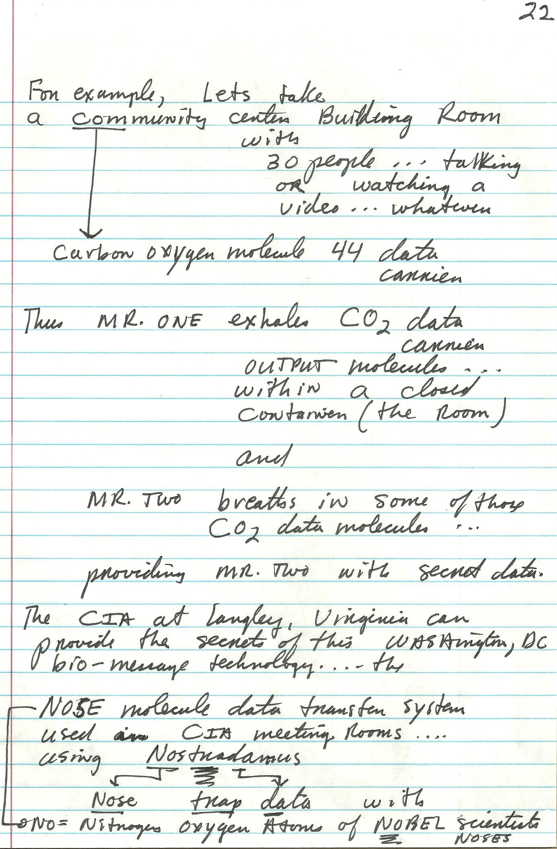 22
For example, Lets take
a community center Building Room
with
30 people ... talking
OR watching a
video ... whatever
Carbon oxygen molecule 44 data
carrier
Thus MR. ONE exhales CO2 data
carrier
OUTPUT molecules ...
within a closed
container (the Room)
and
MR. TWO breaths in some of those
CO2 data molecules ...
providing MR. TWO with secret data.
The CIA at Langley, Virginia can
provide the secrets of this WASHington, DC
bio-message technology.... the
NOSE molecule data transfer system
used in CIA meeting Rooms ....
using Nostradamus
Nose trap data with
NO= Nitrogen oxygen Atoms of NOBEL scientists
NOSES